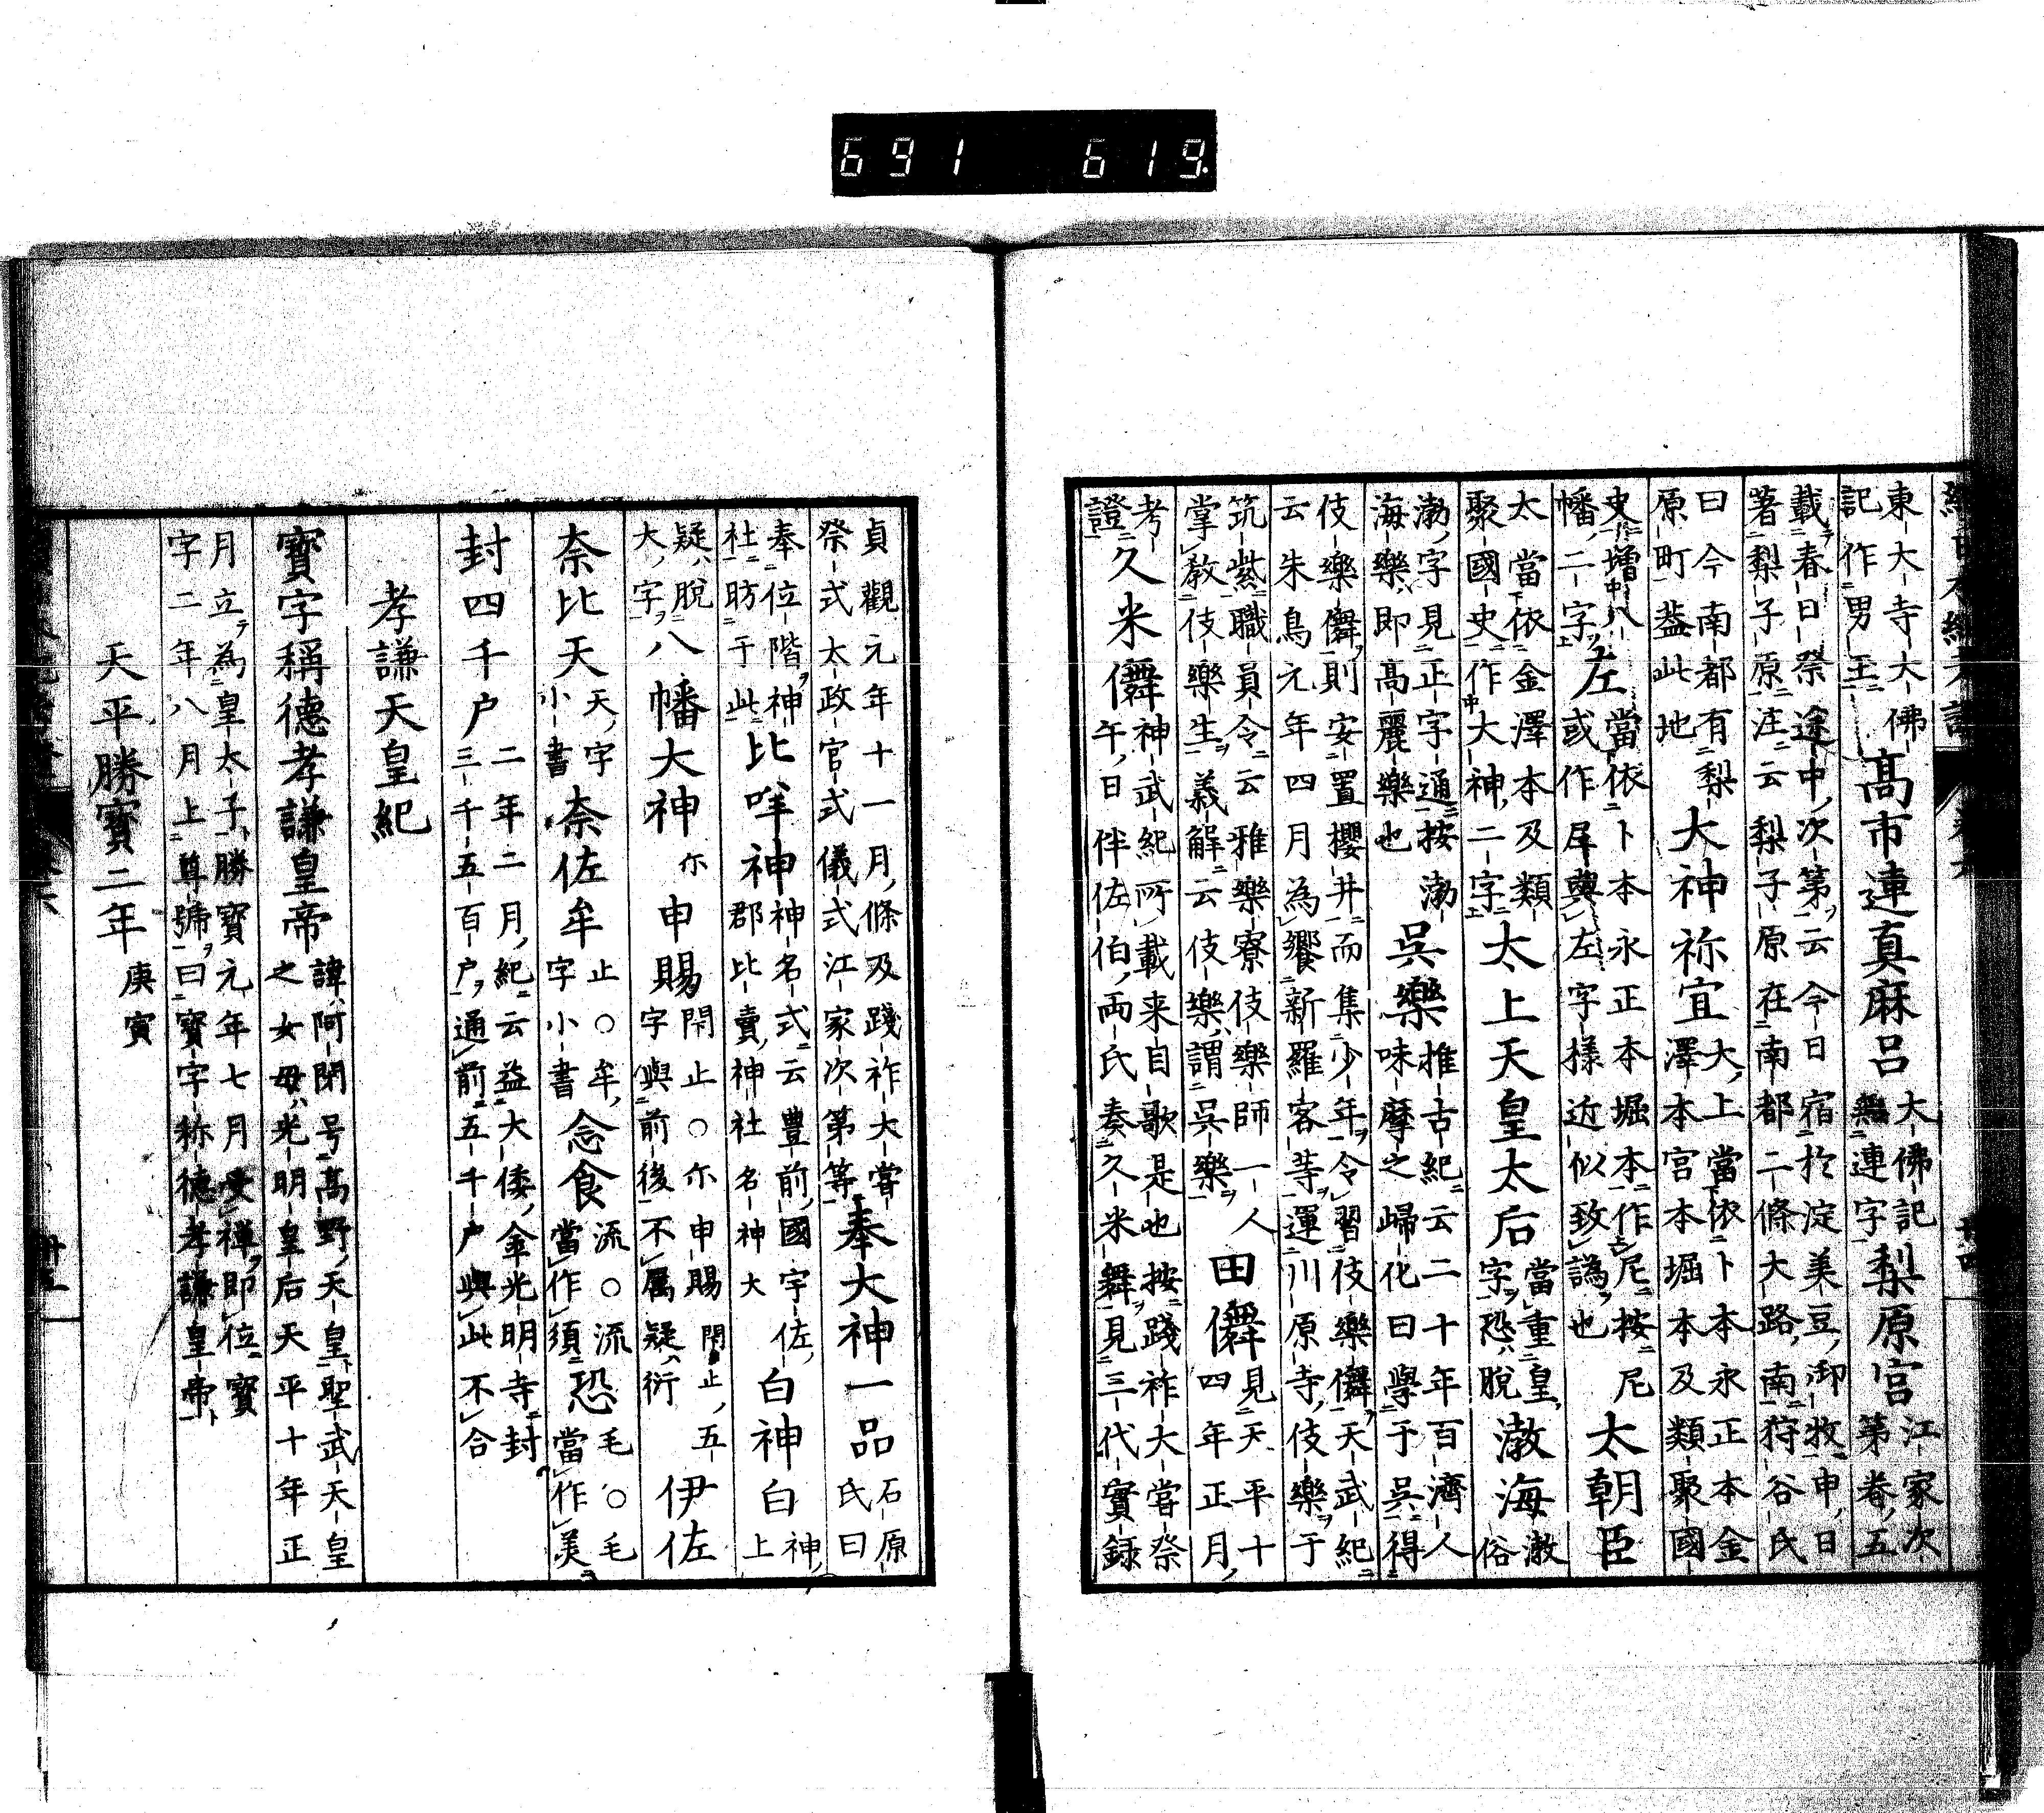 691 619
東大寺大佛
記作男王
高市連真麻呂
大佛記
無連字
梨原宮
江家次
第卷五
載春日祭途中次第云今日宿於淀美豆御牧申日
著梨子原注云梨子原在南都二條大路南狩谷氏
曰今南都有梨
原町蓋此地
大神祢宜
大上當依卜本永正本金
澤本宮本堀本及類聚國
史増八
幡二字
左
當依卜本永正本堀本作尼按尼
或作𡰱與左字様近似致譌也
太朝臣
太當依金澤本及類
聚國史作大神二字
太上天皇太后
當重皇
字恐脫
渤海
渤俗
渤字見正字通按渤
海樂即高麗樂也
呉樂
推古紀云二十年百濟人
味摩之歸化曰學于呉得
伎樂儛則安置櫻井而集少年令習伎樂儛天武紀
云朱鳥元年四月為饗新羅客等運川原寺伎樂于
筑紫職員令云雅樂寮伎樂師一人
掌教伎樂生義解云伎樂謂呉樂
田儛
見天平十
四年正月
考
證
久米儛
神武紀所載来目歌是也按踐祚大嘗祭
午日伴佐伯両氏奏久米舞見三代實録
貞觀元年十一月條及踐祚大嘗
祭式太政官式儀式江家次第等
奉大神一品
石原
氏曰
奉位階神
社昉于此
比咩神
神名式云豊前國宇佐
郡比賣神社名神大
白神
白神
上
疑脫
大字
八幡大神
尓
申賜
閇止○尓申賜閇止五
字與前後不属疑衍
伊佐
奈比天
天字
小書
奈佐牟
止○牟
字小書
念食
流○流
當作須
恐
毛○毛
當作美
封四千户
二年二月紀云益大倭金光明寺封
三千五百户通前五千户與此不合
孝謙天皇紀
寶字稱德孝謙皇帝
諱阿閇号高野天皇聖武天皇
之女母光明皇后天平十年正
月立為皇太子勝寶元年七月受禅即位寶
字二年八月上尊號曰寶字称德孝謙皇帝
天平勝寶二年
庚寅